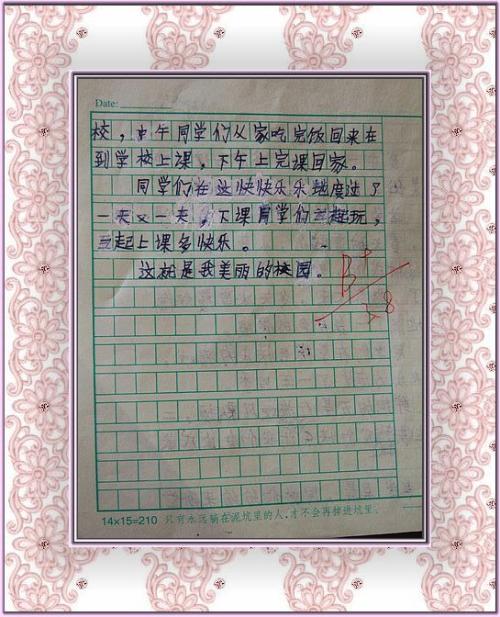 Date:
校，中午同学们从家吃完饭回来在
到学校上课，下午上完课回家。
同学们在这快快乐乐地度过了
一天又一天，下课同学们一起玩，
一起上课多快乐。
这就是我美丽的校园。
B+
28
14×15=210 只有永远躺在泥坑里的人，才不会再掉进坑里。